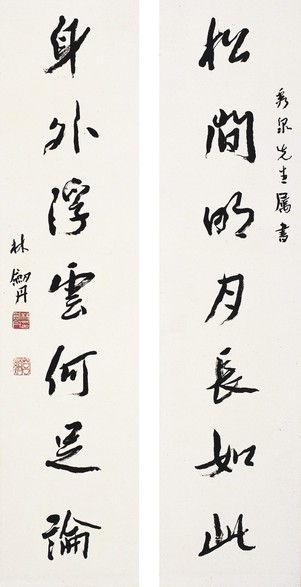 松間明月長如此
秀泉先生属書
身外浮雲何足論
林劍丹